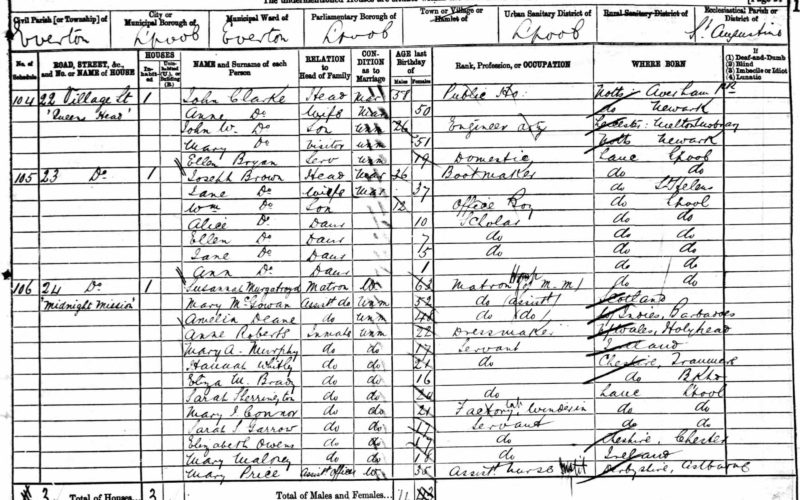 The undermentioned Houses are
Civil Parish [or Township] of City or Municipal Borough of Municipal Ward of Parliamentary Borough of Town or Village or Hamlet of Urban Sanitary District of Rural Sanitary District of Ecclesiastical Parish or District of
Everton L'pool Everton L'pool L'pool St Augustine
No. of Schedule ROAD, STREET, &c., and No. or NAME of HOUSE HOUSES In-habited Uninhabited (U.), or Building (B.) NAME and Surname of each Person RELATION to Head of Family CONDITION as to Marriage AGE last Birthday of Males Females Rank, Profession, or OCCUPATION WHERE BORN If (1) Deaf-and-Dumb (2) Blind (3) Imbecile or Idiot (4) Lunatic
104 22 Village St 1 John Clarke Head Mar 58 Public Ho: Notts Averham
'Queens Head' Anne Do Wife Mar 50 do Newark
John W. Do Son unm 26 Engineer Leicester: Melton Mobray
Mary Do Visitor unm 51 Notts Newark
Ellen Bryan Serv unm 19 Domestic Lanc L'pool
105 23 Do 1 Joseph Brown Head Mar 36 Bootmaker do do
Jane Do Wife Mar 37 do St Helens
Wm Do Son 12 Office Boy do L'pool
Alice Do Daur 10 Scholar do do
Ellen Do Daur 7 do do do
Jane Do Daur 5 do do do
Ann Do Daur 1 do do
106 24 Do 1 Susannah Murgatroyd Matron W 62 Matron (M. M)
'Midnight Mission' Mary McGowan Assist do Unm 52 do (assist) Scotland
Amelia Deane do unm do (do) W Indies, Barbadoes
Anne Roberts Inmate unm 22 Dressmaker N Wales, Holyhead
Mary A. Murphy do do 17 Servant Ireland
Hannah Whitby do do 21 do Cheshire, Tranmere
Eliza M. Brady do do 16 do do B'khd
Sarah Sherrington do do 20 do Lanc L'pool
Mary J Connor do do 21 Factory do do
Sarah J Garrow do do 17 Servant do do
Elizabeth Owens do do 17 do Cheshire, Chester
Mary Maloney do do 18 do Ireland
Mary Price Assist Officer W 35 Assist. nurse Derbyshire, Ashburne
3 Total of Houses... 3 Total of Males and Females... 4